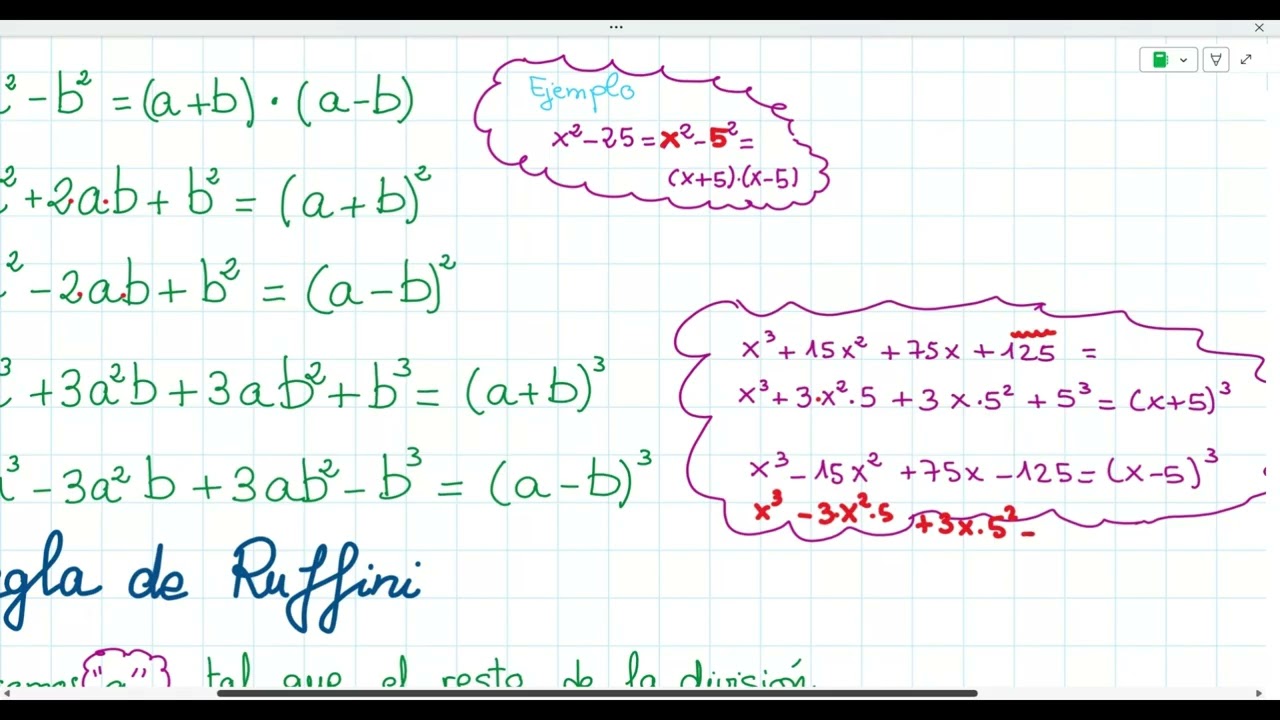 ² - b² = (a+b) · (a-b)
² + 2·a·b + b² = (a+b)²
² - 2·a·b + b² = (a-b)²
³ + 3a²b + 3ab² + b³ = (a+b)³
³ - 3a²b + 3ab² - b³ = (a-b)³
Ejemplo
x² - 25 = x² - 5² =
(x+5)·(x-5)
x³ + 15x² + 75x + 125 =
x³ + 3·x²·5 + 3x·5² + 5³ = (x+5)³
x³ - 15x² + 75x - 125 = (x-5)³
x³ - 3·x²·5 + 3x·5² -
gla de Ruffini
"a" tal que el resto de la división.